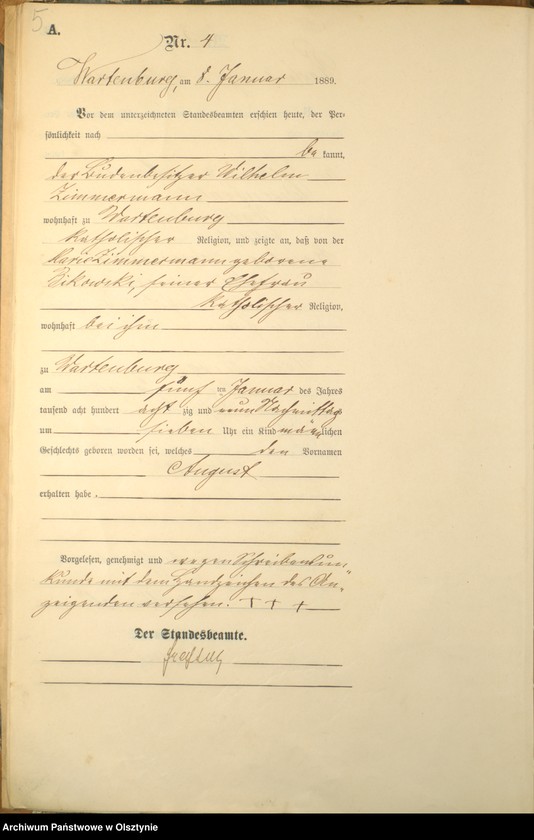 5
A.
Nr. 4
Wartenburg, am 8. Januar 1889.
Vor dem unterzeichneten Standesbeamten erschien heute, der Per-
sönlichkeit nach
be kannt,
der Budenbesitzer Wilhelm
Zimmermann
wohnhaft zu Wartenburg
katholischer Religion, und zeigte an, daß von der
Zimmermann geborene
seiner Ehefrau
katholischer Religion,
wohnhaft bei ihm
zu Wartenburg
am fünf ten Januar des Jahres
tausend acht hundert acht zig und neun Nachmittag
um sieben Uhr ein Kind männlichen
Geschlechts geboren worden sei, welches den Vornamen
August
erhalten habe.
Vorgelesen, genehmigt und wegen Schreibensun-
kunde mit dem Handzeichen des An-
zeigenden versehen. + + +
Der Standesbeamte.
Archiwum Państwowe w Olsztynie